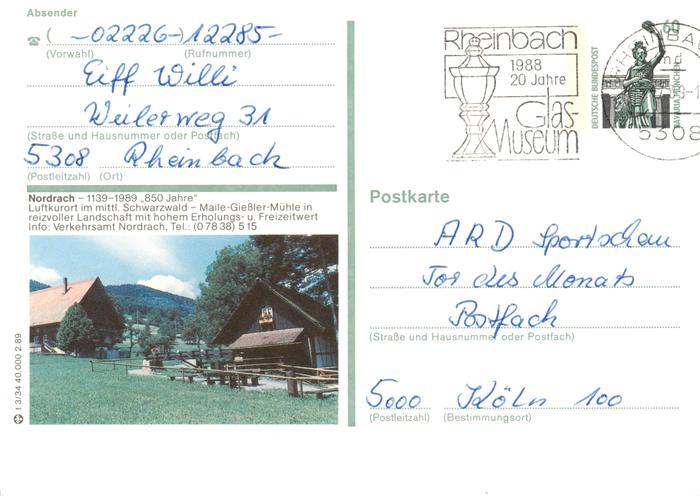 Absender
☎ ( -02226-) 12285-
(Vorwahl) (Rufnummer)
Eiff Willi
Weilerweg 31
(Straße und Hausnummer oder Postfach)
5308 Rheinbach
(Postleitzahl) (Ort)
Nordrach – 1139–1989 „850 Jahre“
Luftkurort im mittl. Schwarzwald – Maile-Gießler-Mühle in
reizvoller Landschaft mit hohem Erholungs- u. Freizeitwert
Info: Verkehrsamt Nordrach, Tel.: (0 78 38) 5 15
13/34 40.000 2.89
Rheinbach
1988
20 Jahre
Glas-
Museum
DEUTSCHE BUNDESPOST
60
BAVARIA MÜNCHEN
RHEINBA
5308
Postkarte
ARD Sportschau
Tor des Monats
Postfach
(Straße und Hausnummer oder Postfach)
5000 Köln 100
(Postleitzahl) (Bestimmungsort)